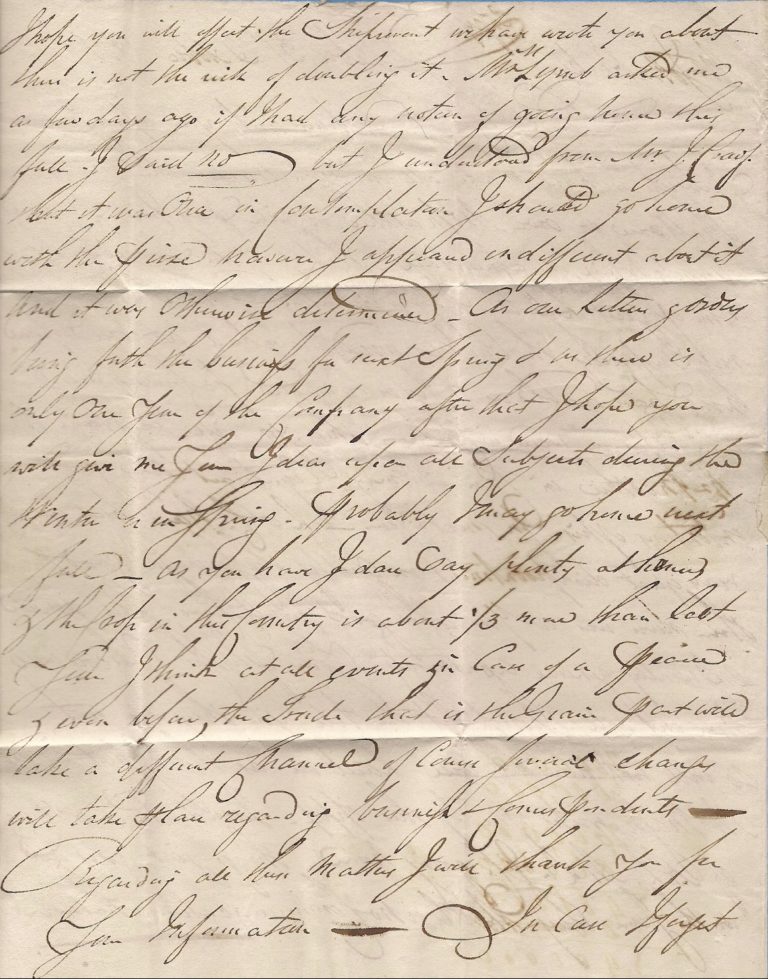 I hope you will effect the Shipment we have wrote you about
there is not the risk of doubling it - Mr Lymb asked me
a few days ago if I had any notion of going home this
fall - I said no but I understood from Mr J. Craig
that it was Once in Contemplation I should go home
with the however I appeared indifferent about it
and it was Otherwise determined - As our Letters
being forth the business for next Spring & as there is
only One Year of the Company after that I hope you
will give me Your Ideas upon all Subjects during the
Winter or in Spring - Probably I may go home next
fall - As you have I dare say plenty at home
& the Crop in this Country is about 1/3 more than last
Year I think at all events & in Case of a Peace
& even before, the Trade that is the Grain Part will
take a different Channel Of Course Several changes
will take place regarding business & Correspondents
Regarding all these Matters I will thank You for
Your Information In Case I forget